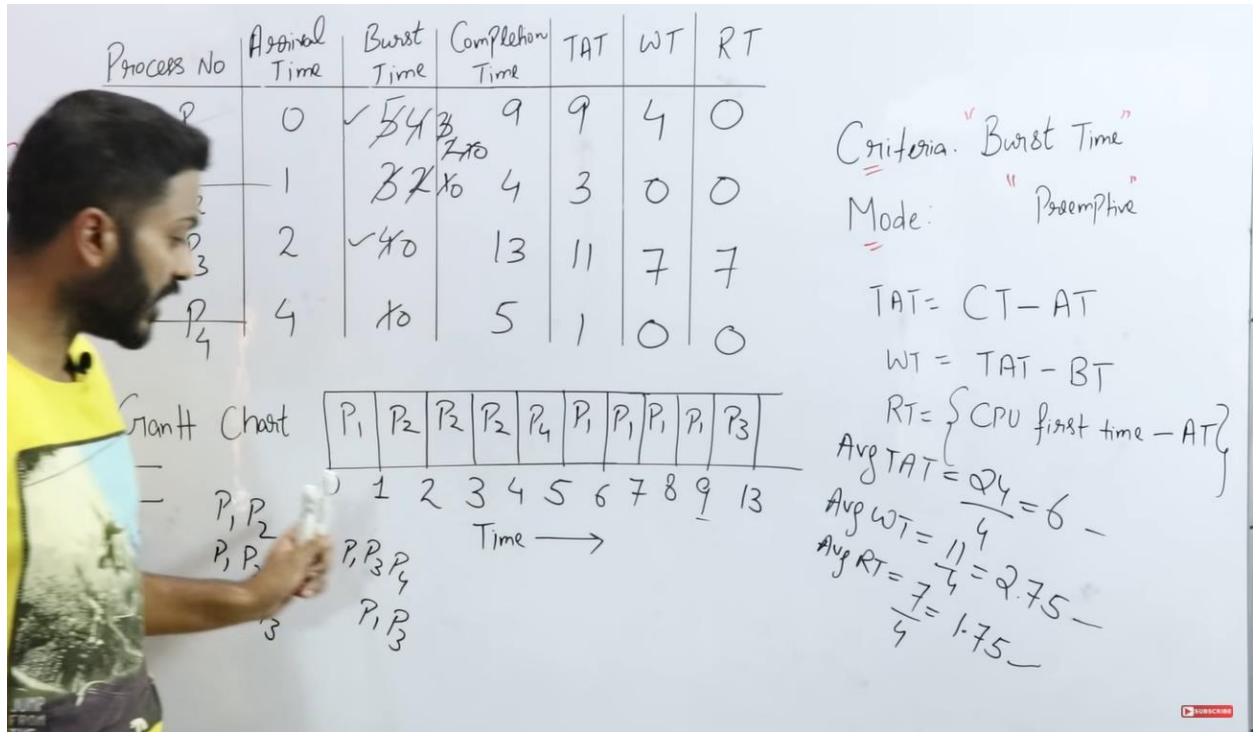 Process No | Arrival Time | Burst Time | Completion Time | TAT | WT | RT
P 0 5 4 3 2 1 0 9 9 4 0
2 1 3 2 1 0 4 3 0 0
P3 2 4 0 13 11 7 7
P4 4 1 0 5 1 0 0
Criteria: "Burst Time"
Mode: "Preemptive"
TAT = CT - AT
WT = TAT - BT
RT = {CPU first time - AT}
Avg TAT = 24/4 = 6
Avg WT = 11/4 = 2.75
Avg RT = 7/4 = 1.75
Gantt Chart
P1 P2 P2 P2 P4 P1 P1 P1 P1 P3
0 1 2 3 4 5 6 7 8 9 13
Time →
P1 P2
P1 P
3
P1 P3 P4
P1 P3
JUMP
FROM
SUBSCRIBE